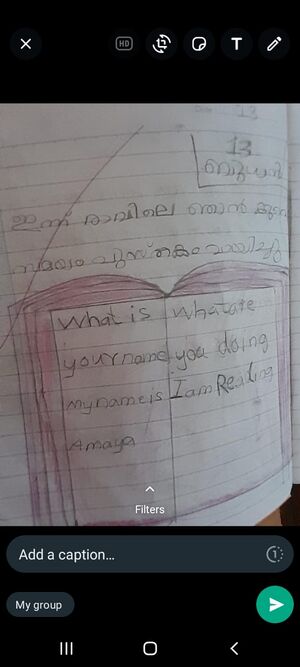 HD
T
13
13
ബുധൻ
ഇന്ന് രാവിലെ ഞാൻ കുറെ
സമയം പുസ്തകം വായിച്ചു
What is
your name
my name is
Amaya
what are
you doing
I am Reading
Filters
Add a caption...
1
My group